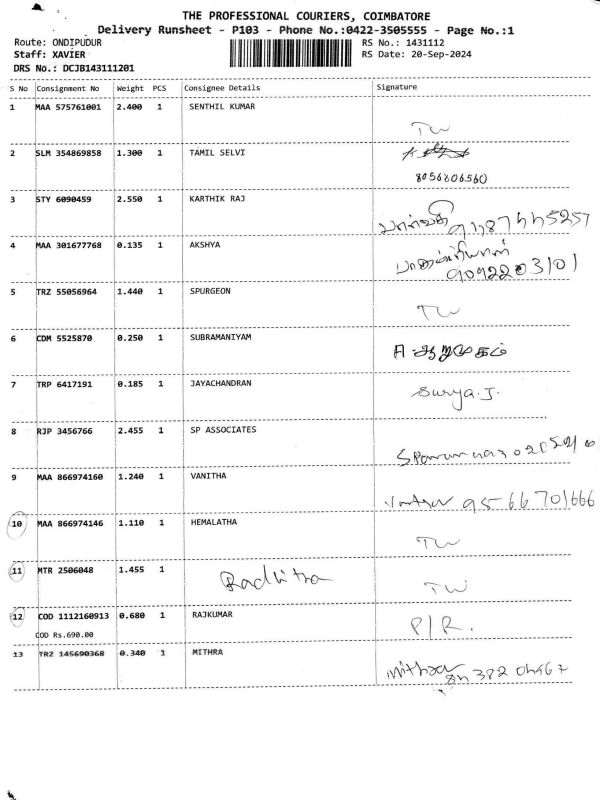 THE PROFESSIONAL COURIERS, COIMBATORE
Delivery Runsheet - P103 - Phone No.:0422-3505555 - Page No.:1
Route: ONDIPUDUR RS No.: 1431112
Staff: XAVIER RS Date: 20-Sep-2024
DRS No.: DCJB143111201
S No Consignment No Weight PCS Consignee Details Signature
1 MAA 575761001 2.400 1 SENTHIL KUMAR
TW
2 SLM 354869858 1.300 1 TAMIL SELVI
8056806560
3 STY 6090459 2.550 1 KARTHIK RAJ
4 MAA 301677768 0.135 1 AKSHYA
9092203101
5 TRZ 55056964 1.440 1 SPURGEON
TW
6 CDM 5525870 0.250 1 SUBRAMANIYAM
A-ஆறுமுகம்
7 TRP 6417191 0.185 1 JAYACHANDRAN
Surya.J.
8 RJP 3456766 2.455 1 SP ASSOCIATES
9 MAA 866974160 1.240 1 VANITHA
9566701666
10 MAA 866974146 1.110 1 HEMALATHA
TW
11 MTR 2506048 1.455 1 Radhitha
TW
12 COD 1112160913 0.680 1 RAJKUMAR
P/R.
COD Rs.690.00
13 TRZ 145690368 0.340 1 MITHRA
Mithra